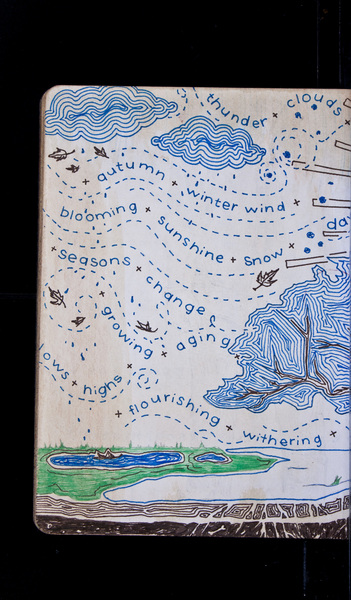 thunder + clouds
autumn + winter wind +
blooming + sunshine + snow +
+ seasons + change &
+ growing + aging
+ highs +
+ flourishing + withering +